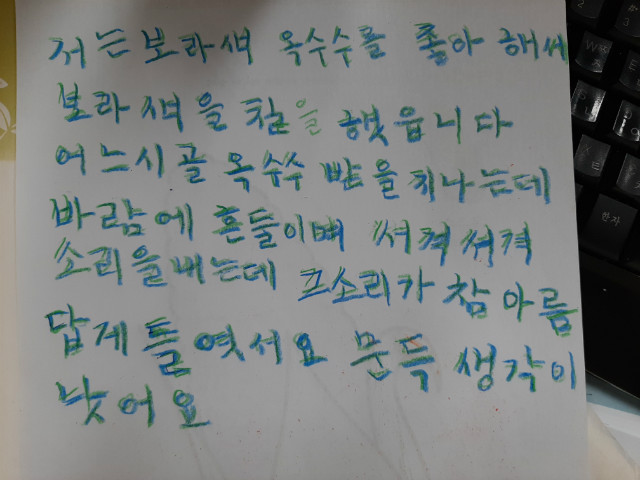 저는 보라색 옥수수를 좋아 해서
보라색을 칠을 햇읍니다
어느시골 옥수수 빧을 지나는데
바람에 흔들이며 서걱서걱
소리을내는데 그소리가 참 아름
답게 들엿서요 문득 생각이
낫어요